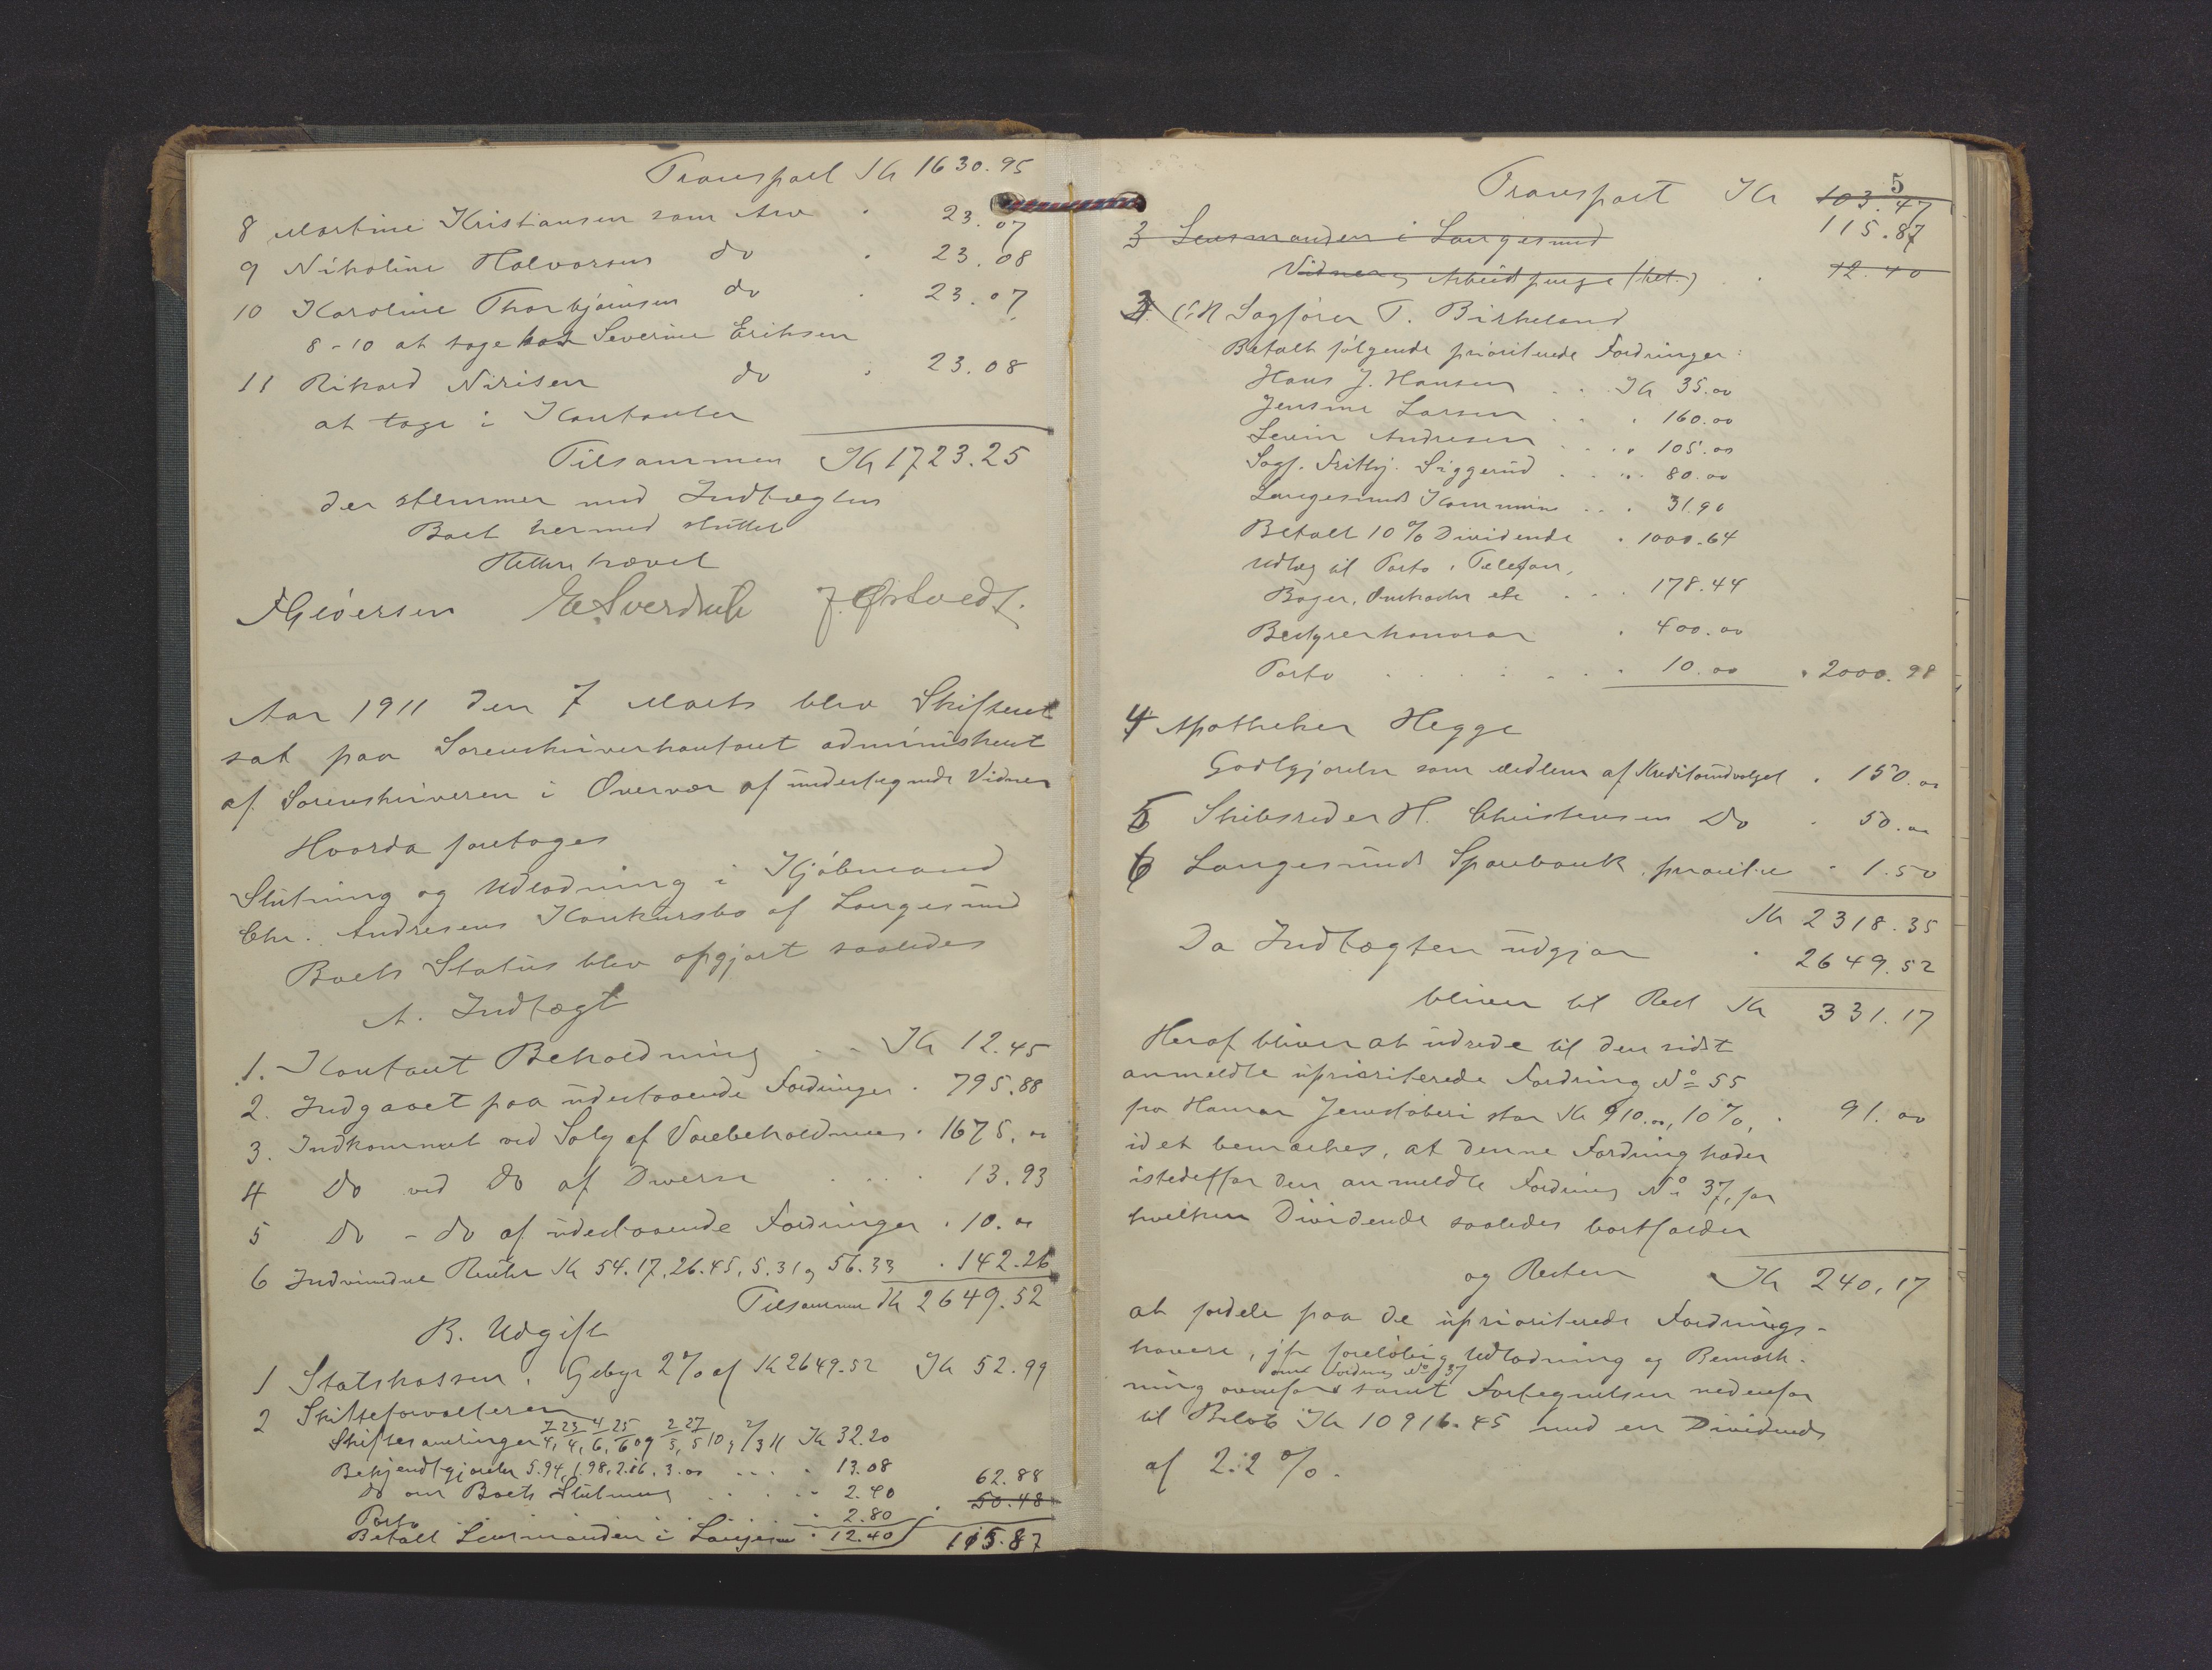 Transport Kr 1630.95
8 Martine Kristiansen som Arv " 23.07
9 Nikoline Halvorsen do " 23.08
10 Karoline Thorbjørnsen do " 23.07
8-10 at tage hos Severine Eriksen
11 Rikard Nirisen do " 23.08
at tage i Kontanter
Tilsammen Kr 1723.25
der stemmer med Indtægten
Boet hermed sluttet
Retten hævet
E Sverdrup J. Østvedt.
Aar 1911 den 7 Marts blev Skifteret
sat paa Sorenskriverkontoret administreret
af Sorenskriveren i Overvær af undertegnede Vidner
Hvorda foretoges
Slutning og Udlodning i Kjøbmand
Chr. Andresens Konkursbo af Langesund
Boets Status blev opgjort saaledes
A. Indtægt
1. Kontant Beholdning . . Kr 12.45
2. Indgaaet paa udestaaende Fordringer . 795.88
3. Indkommet ved Salg af Varebeholdning . 1675.00
4 Do ved Do af Diverse . . . . 13.93
5 Do - do af udestaaende Fordringer . 10.00
6 Indvundne Renter Kr 54.17, 26.45, 5.31 og 56.33 . 142.26
Tilsammen Kr 2649.52
B. Udgift
1 Statskassen, Gebyr 2% af Kr 2649.52 Kr 52.99
2 Skifteforvalteren
Skiftesamlinger 7/4, 23/4, 4/6, 25/6 og 2/5, 27/5 10, 7/3 11 Kr 32.20
Bekjendtgjørelser 5.94, 1.98, 2.16, 3.00 . . . . 13.08 62.88
do om Boets Slutning . . . . 2.40 50.48
Porto . . . . . . 2.80
Betalt Lensmanden i Langesund " 12.40 115.87
5
Transport Kr 103.47
115.87
3 Lensmanden i Langesund
Vidne og Arbeidspenge . 12.40
3 O.R Sagfører T. Birkeland
Betalt følgende prioriterede Fordringer:
Hans J. Hansen . . Kr 35.00
Jensine Larsen . . " 160.00
Levin Andresen . . " 105.00
Sagf. Frithj. Siggerud . . " 80.00
Langesunds Kommune . . " 31.90
Betalt 10% Dividende " 1000.64
Udlæg til Porto, Telefon,
Bøger, etc . . . 178.44
Bestyrerhonorar . 400.00
Porto . . . . . . 10.00 " 2000.98
4 Apotheker Hegge
Godtgjørelse som Medlem af Kreditorudvalget . 150.00
5 Skibsreder H. Christensen Do . 50.00
6 Langesunds Sparebank, " 1.50
Kr 2318.35
Da Indtægten udgjør " 2649.52
bliver til Rest Kr 331.17
Heraf bliver at udrede til den sidst
anmeldte upriorterede Fordring No 55
fra Hamar Jernstøberi stor Kr 910.00, 10%, . 91.00
idet bemærkes, at denne Fordring træder
istedetfor den anmeldte Fordring No 37, for
hvilken Dividende saaledes bortfalder
og Resten Kr 240,17
at fordele paa de uprioriterede Fordrings-
havere, jfr foreløbig Udlodning og Bemærk-
om Fordring No 37
ning ovenfor samt Fortegnelsen nedenfor
til Beløb Kr 10916.45 med en Dividende
af 2.2 %.